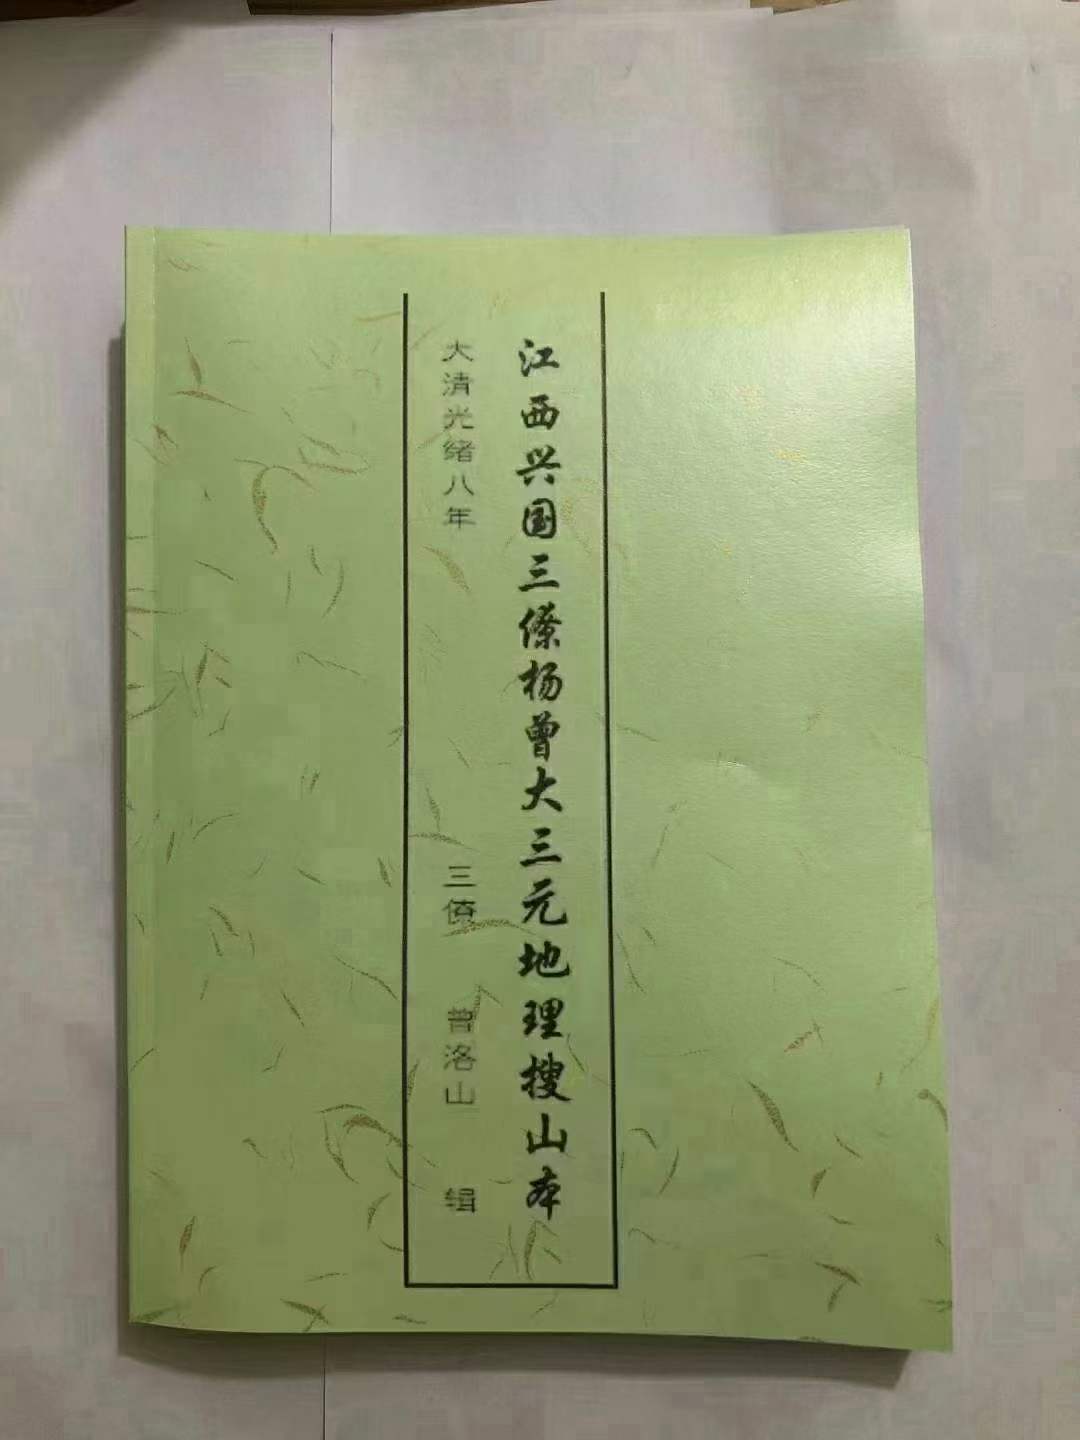 江西兴国三僚杨曾大三元地理搜山本
大清光绪八年
三僚 曾洛山 辑